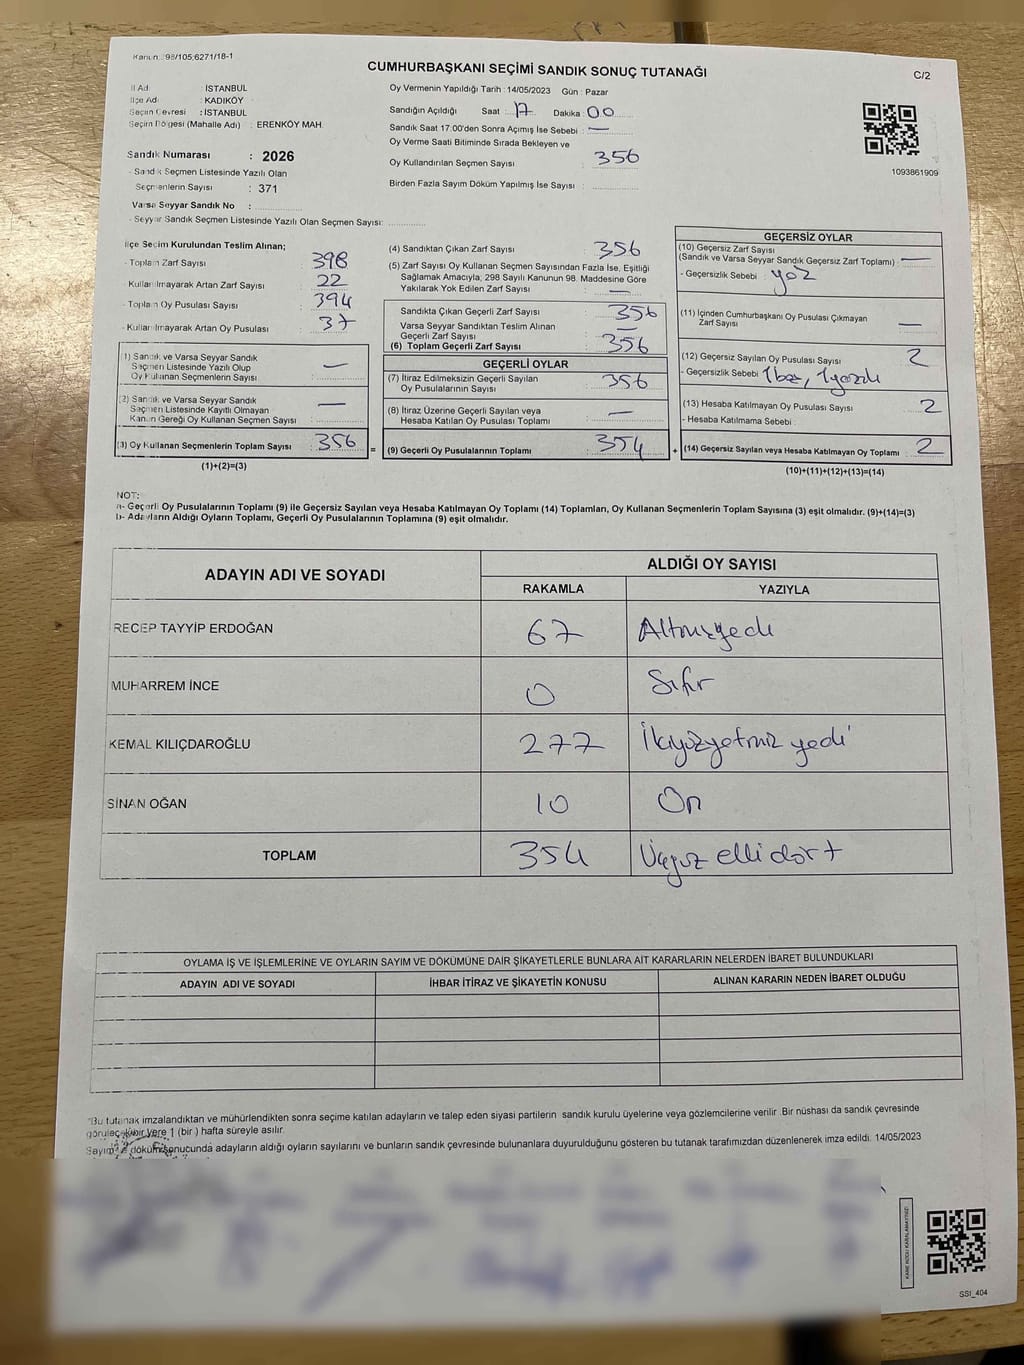 Kanun : 98/105;6271/18-1
CUMHURBAŞKANI SEÇİMİ SANDIK SONUÇ TUTANAĞI
C/2
İl Adı : İSTANBUL
İlçe Adı : KADIKÖY
Seçim Çevresi : İSTANBUL
Seçim Bölgesi (Mahalle Adı) : ERENKÖY MAH.
Sandık Numarası : 2026
- Sandık Seçmen Listesinde Yazılı Olan
Seçmenlerin Sayısı : 371
Varsa Seyyar Sandık No :
- Seyyar Sandık Seçmen Listesinde Yazılı Olan Seçmen Sayısı:
Oy Vermenin Yapıldığı Tarih : 14/05/2023 Gün : Pazar
Sandığın Açıldığı Saat : 17 Dakika : 00
Sandık Saat 17:00'den Sonra Açımış İse Sebebi : —
Oy Verme Saati Bitiminde Sırada Bekleyen ve
Oy Kullandırılan Seçmen Sayısı : 356
Birden Fazla Sayım Döküm Yapılmış İse Sayısı :
1093861909
İlçe Seçim Kurulundan Teslim Alınan;
- Toplam Zarf Sayısı : 398
- Kullanılmayarak Artan Zarf Sayısı : 22
- Toplam Oy Pusulası Sayısı : 394
- Kullanılmayarak Artan Oy Pusulası : 37
1) Sandık ve Varsa Seyyar Sandık
Seçmen Listesinde Yazılı Olup
Oy Kullanan Seçmenlerin Sayısı : —
(2) Sandık ve Varsa Seyyar Sandık
Seçmen Listesinde Kayıtlı Olmayan
Kanun Gereği Oy Kullanan Seçmen Sayısı : —
(3) Oy Kullanan Seçmenlerin Toplam Sayısı : 356
(1)+(2)=(3)
=
(4) Sandıktan Çıkan Zarf Sayısı : 356
(5) Zarf Sayısı Oy Kullanan Seçmen Sayısından Fazla İse, Eşitliği
Sağlamak Amacıyla, 298 Sayılı Kanunun 98. Maddesine Göre
Yakılarak Yok Edilen Zarf Sayısı : —
Sandıkta Çıkan Geçerli Zarf Sayısı : 356
Varsa Seyyar Sandıktan Teslim Alınan
Geçerli Zarf Sayısı : —
(6) Toplam Geçerli Zarf Sayısı : 356
GEÇERLİ OYLAR
(7) İtiraz Edilmeksizin Geçerli Sayılan
Oy Pusulalarının Sayısı : 356
(8) İtiraz Üzerine Geçerli Sayılan veya
Hesaba Katılan Oy Pusulası Toplamı : —
(9) Geçerli Oy Pusulalarının Toplamı : 354
+
GEÇERSİZ OYLAR
(10) Geçersiz Zarf Sayısı
(Sandık ve Varsa Seyyar Sandık Geçersiz Zarf Toplamı) : —
- Geçersizlik Sebebi : yoz
(11) İçinden Cumhurbaşkanı Oy Pusulası Çıkmayan
Zarf Sayısı : —
(12) Geçersiz Sayılan Oy Pusulası Sayısı : 2
- Geçersizlik Sebebi 1 boş, 1 yazılı
(13) Hesaba Katılmayan Oy Pusulası Sayısı : 2
- Hesaba Katılmama Sebebi :
(14) Geçersiz Sayılan veya Hesaba Katılmayan Oy Toplamı : 2
(10)+(11)+(12)+(13)=(14)
NOT:
a- Geçerli Oy Pusulalarının Toplamı (9) ile Geçersiz Sayılan veya Hesaba Katılmayan Oy Toplamı (14) Toplamları, Oy Kullanan Seçmenlerin Toplam Sayısına (3) eşit olmalıdır. (9)+(14)=(3)
b- Adayların Aldığı Oyların Toplamı, Geçerli Oy Pusulalarının Toplamına (9) eşit olmalıdır.
ADAYIN ADI VE SOYADI
ALDIĞI OY SAYISI
RAKAMLA YAZIYLA
RECEP TAYYİP ERDOĞAN 67 Altmışyedi
MUHARREM İNCE 0 Sıfır
KEMAL KILIÇDAROĞLU 277 İkiyüzyetmiz yedi
SİNAN OĞAN 10 On
TOPLAM 354 Üçyüz elli dört
OYLAMA İŞ VE İŞLEMLERİNE VE OYLARIN SAYIM VE DÖKÜMÜNE DAİR ŞİKAYETLERLE BUNLARA AİT KARARLARIN NELERDEN İBARET BULUNDUKLARI
ADAYIN ADI VE SOYADI İHBAR İTİRAZ VE ŞİKAYETİN KONUSU ALINAN KARARIN NEDEN İBARET OLDUĞU
*Bu tutanak imzalandıktan ve mühürlendikten sonra seçime katılan adayların ve talep eden siyasi partilerin sandık kurulu üyelerine veya gözlemcilerine verilir. Bir nüshası da sandık çevresinde
görülecek bir yere 1 (bir ) hafta süreyle asılır.
Sayım ve dökümü sonucunda adayların aldığı oyların sayılarını ve bunların sandık çevresinde bulunanlara duyurulduğunu gösteren bu tutanak tarafımızdan düzenlenerek imza edildi. 14/05/2023
KARE KODU KARALAMAYINIZ!
SSI_404